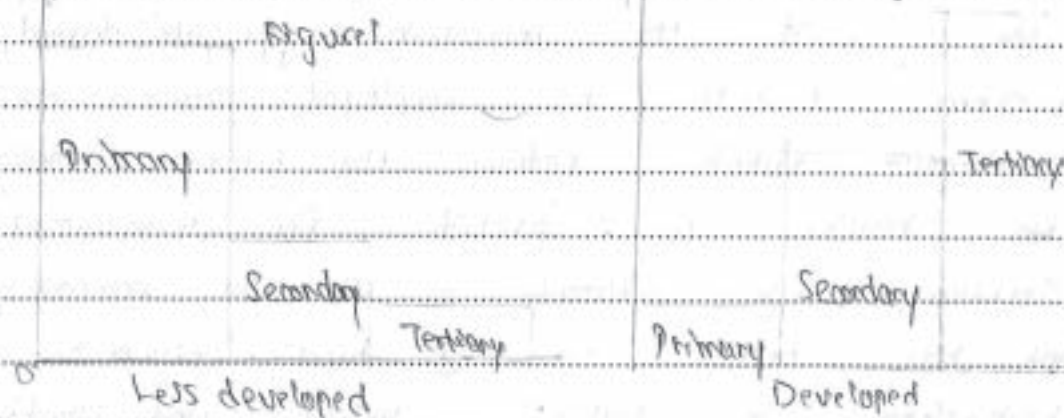 Figure 1
Primary
Tertiary
Secondary
Secondary
Tertiary
Primary
0
Less developed
Developed